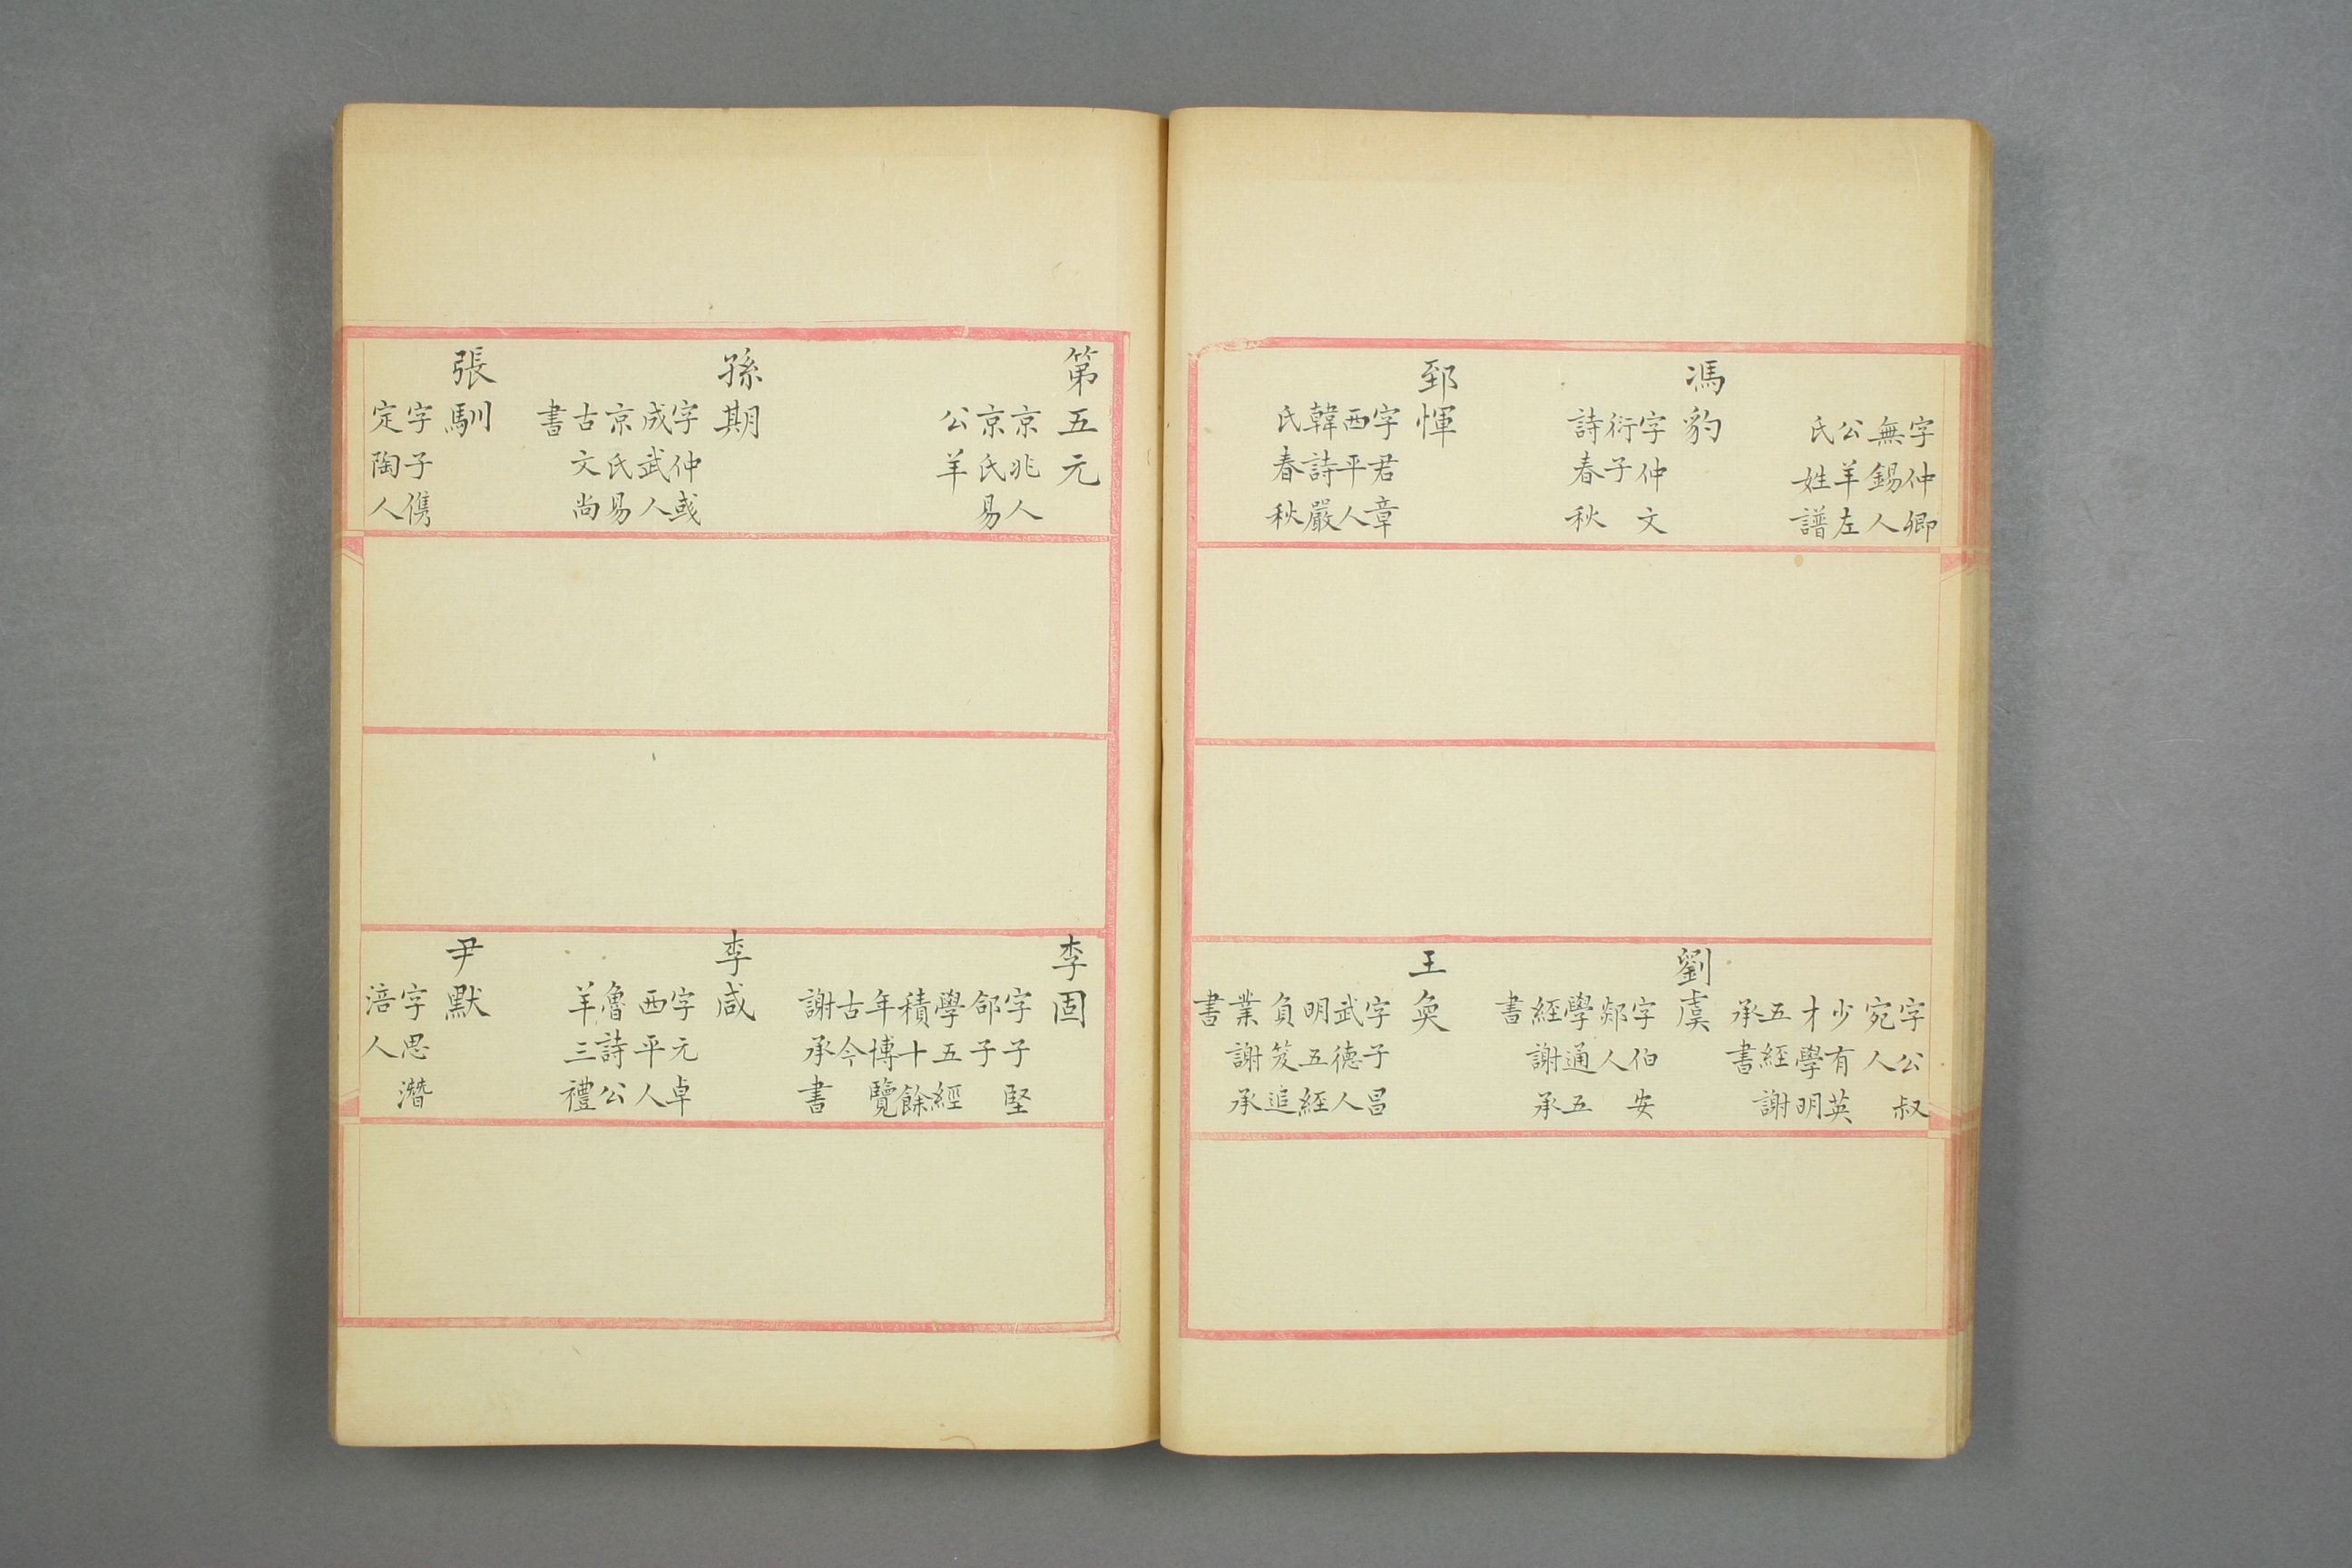 字仲卿
無錫人
公羊左
氏姓譜
馮豹
字仲文
衍子
詩春秋
郅惲
字君章
西平人
韓詩嚴
氏春秋
字公叔
宛人
少有英
才學明
五經謝
承書
劉虞
字伯安
郯人
學通五
經謝承
書
王奐
字子昌
武德人
明五經
負笈追
業謝承
書
第五元
京兆人
京氏易
公羊
孫期
字仲彧
成武人
京氏易
古文尚
書
張馴
字子儁
定陶人
李固
字子堅
郃子
學五經
積十餘
年博覽
古今
謝承書
李咸
字元卓
西平人
魯詩公
羊三禮
尹默
字思潛
涪人